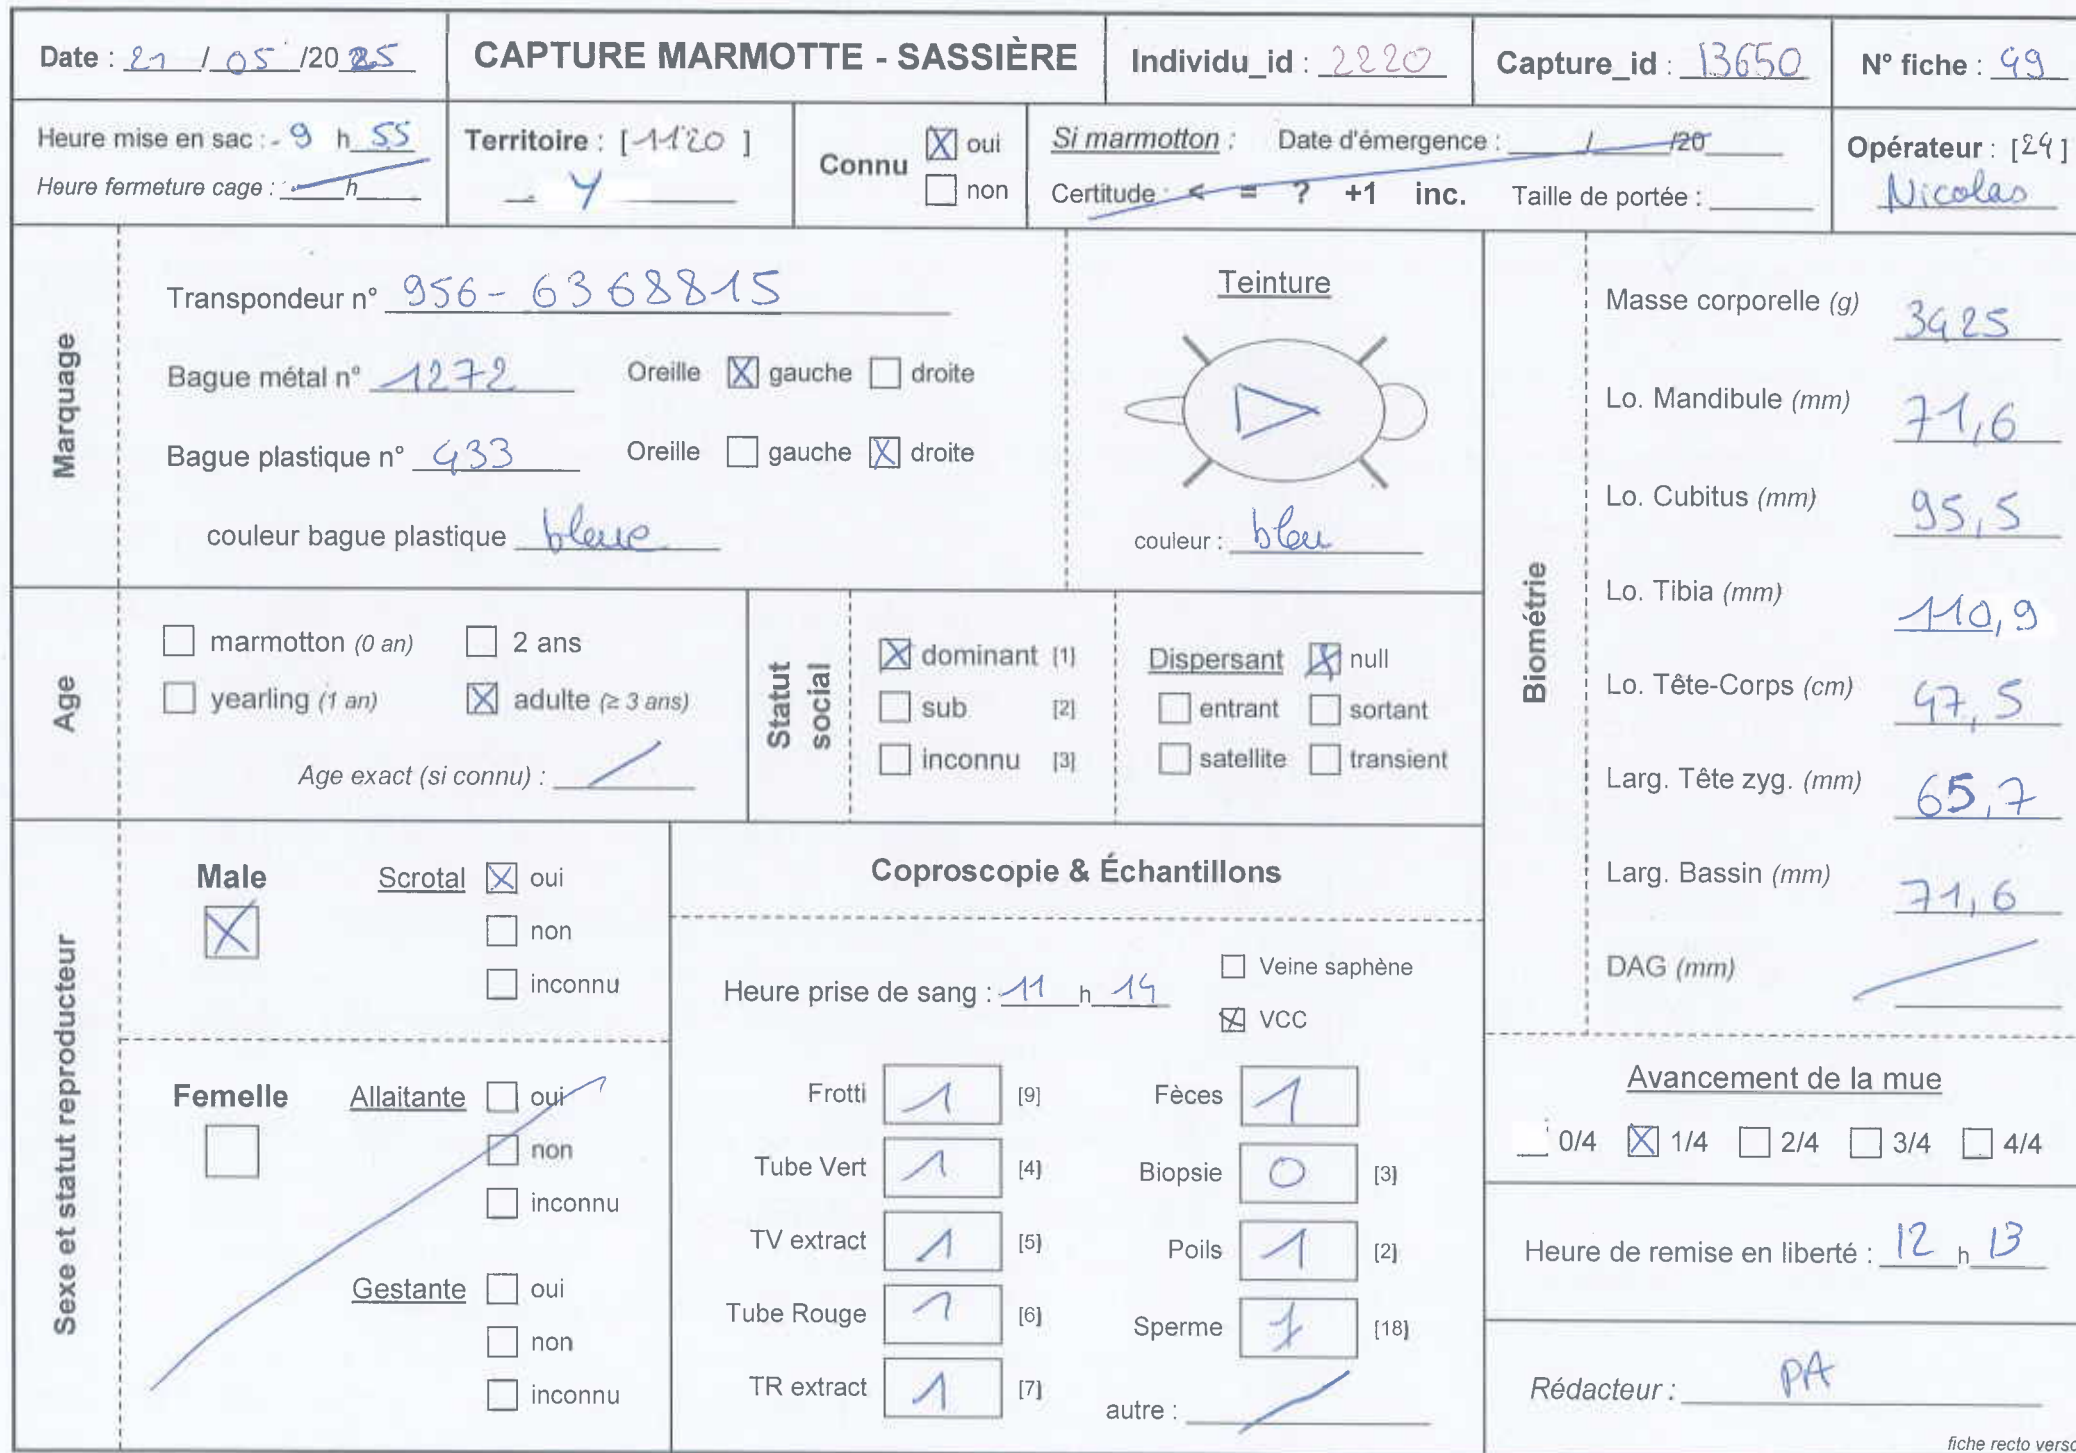 Date : 21 / 05 /2025
CAPTURE MARMOTTE - SASSIÈRE
Individu_id : 2220
Capture_id : 13650
N° fiche : 49
Heure mise en sac : 9 h 55
Heure fermeture cage : ___ h ___
Territoire : [1120]
Y
Connu
oui
non
Si marmotton : Date d'émergence : / /20
Certitude : < = ? +1 inc. Taille de portée :
Opérateur : [24]
Nicolas
Marquage
Transpondeur n° 956-6368815
Bague métal n° 1272 Oreille gauche droite
Bague plastique n° 433 Oreille gauche droite
couleur bague plastique bleue
Teinture
couleur : bleu
Age
marmotton (0 an) 2 ans
yearling (1 an) adulte (≥ 3 ans)
Age exact (si connu) :
Statut social
dominant [1]
sub [2]
inconnu [3]
Dispersant null
entrant sortant
satellite transient
Biométrie
Masse corporelle (g) 3425
Lo. Mandibule (mm) 71,6
Lo. Cubitus (mm) 95,5
Lo. Tibia (mm) 110,9
Lo. Tête-Corps (cm) 47,5
Larg. Tête zyg. (mm) 65,7
Larg. Bassin (mm) 71,6
DAG (mm)
Sexe et statut reproducteur
Male Scrotal oui
non
inconnu
Femelle Allaitante oui
non
inconnu
Gestante oui
non
inconnu
Coproscopie & Échantillons
Heure prise de sang : 11 h 14
Veine saphène
VCC
Frotti 1 [9] Fèces 1
Tube Vert 1 [4] Biopsie 0 [3]
TV extract 1 [5] Poils 1 [2]
Tube Rouge 1 [6] Sperme 1 [18]
TR extract 1 [7] autre :
Avancement de la mue
0/4 1/4 2/4 3/4 4/4
Heure de remise en liberté : 12 h 13
Rédacteur : PA
fiche recto verso